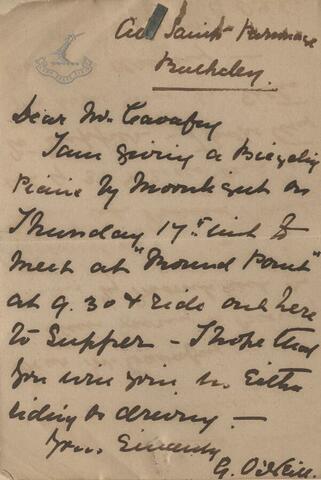 All Saints Parsonage
Bulkeley.
Dear Mr Cavafy
I am giving a Bicycling
Picnic by Moonlight on
Thursday 17th inst to
meet at "Mound Point"
at 9.30 & ride out here
to Supper - I hope that
you will join us either
riding or driving -
Yours Sincerely
G.